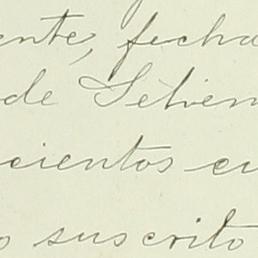 ente, fecha
de Setiem
cientos cu
o suscrito